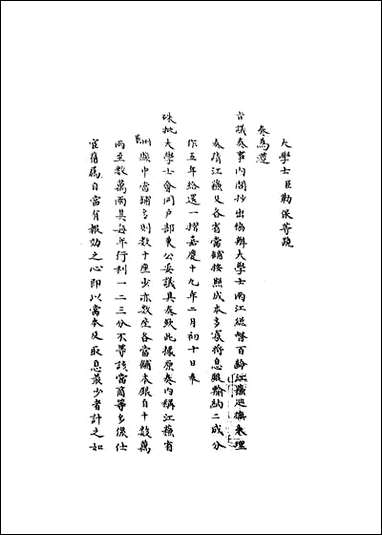 大學士臣勒保等跪
奏為遵
旨議奏事內閣抄出協辦大學士兩江總督百齡江蘇巡撫朱理
奏請江蘇及各省當鋪按照成本多寡將息銀輸納二成分
作五年給還一摺嘉慶十九年二月初十日奉
硃批大學士會同戶部東公妥議具奏欽此據原奏內稱江蘇省
州縣中當鋪多則數十座少亦數座各當鋪本銀自十數萬
兩至數萬兩其每年行利一二三分不等該當商等多係仕
宦舊屬自當有報効之心即以當本及取息最少者計之如